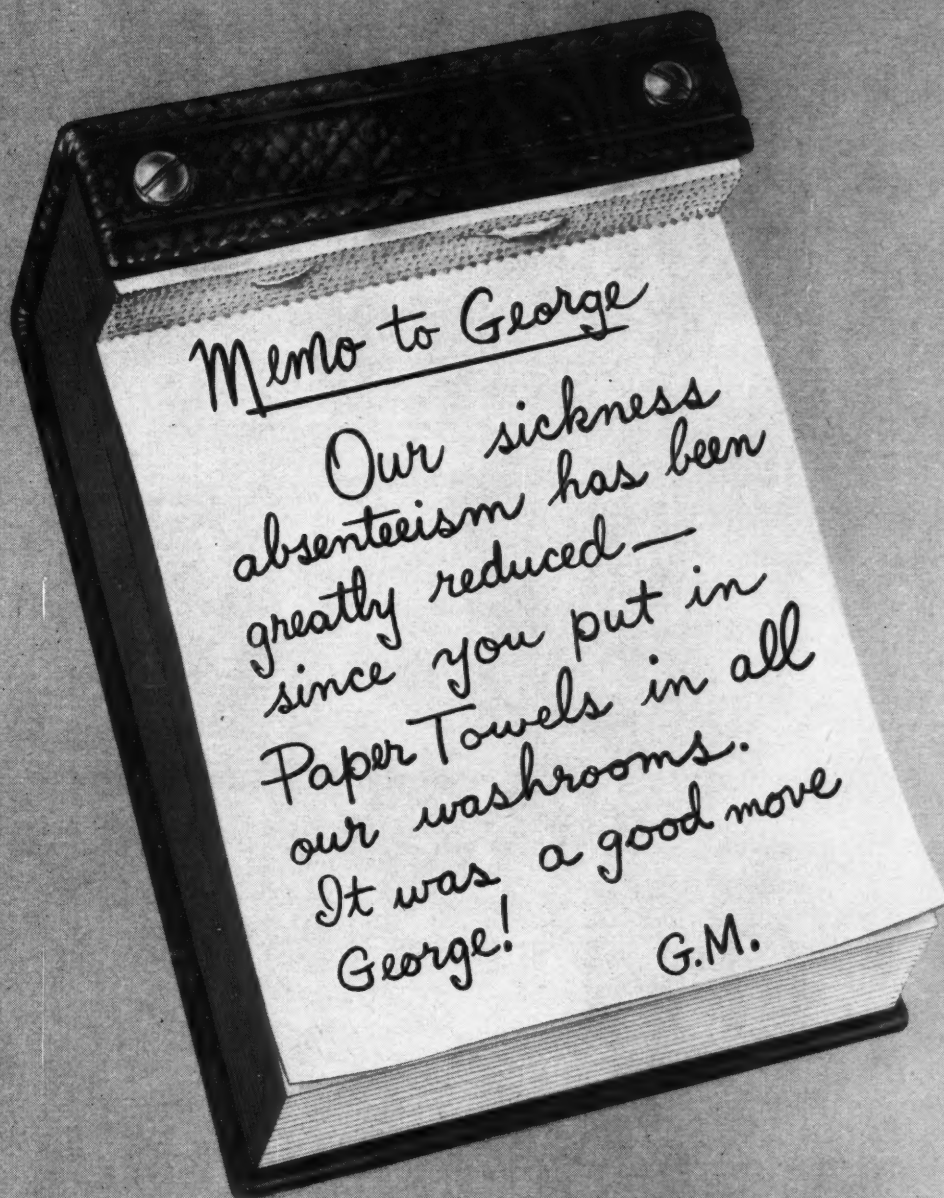 Memo to George
Our sickness
absenteeism has been
greatly reduced—
since you put in
Paper Towels in all
our washrooms.
It was a good move
George!   G.M.